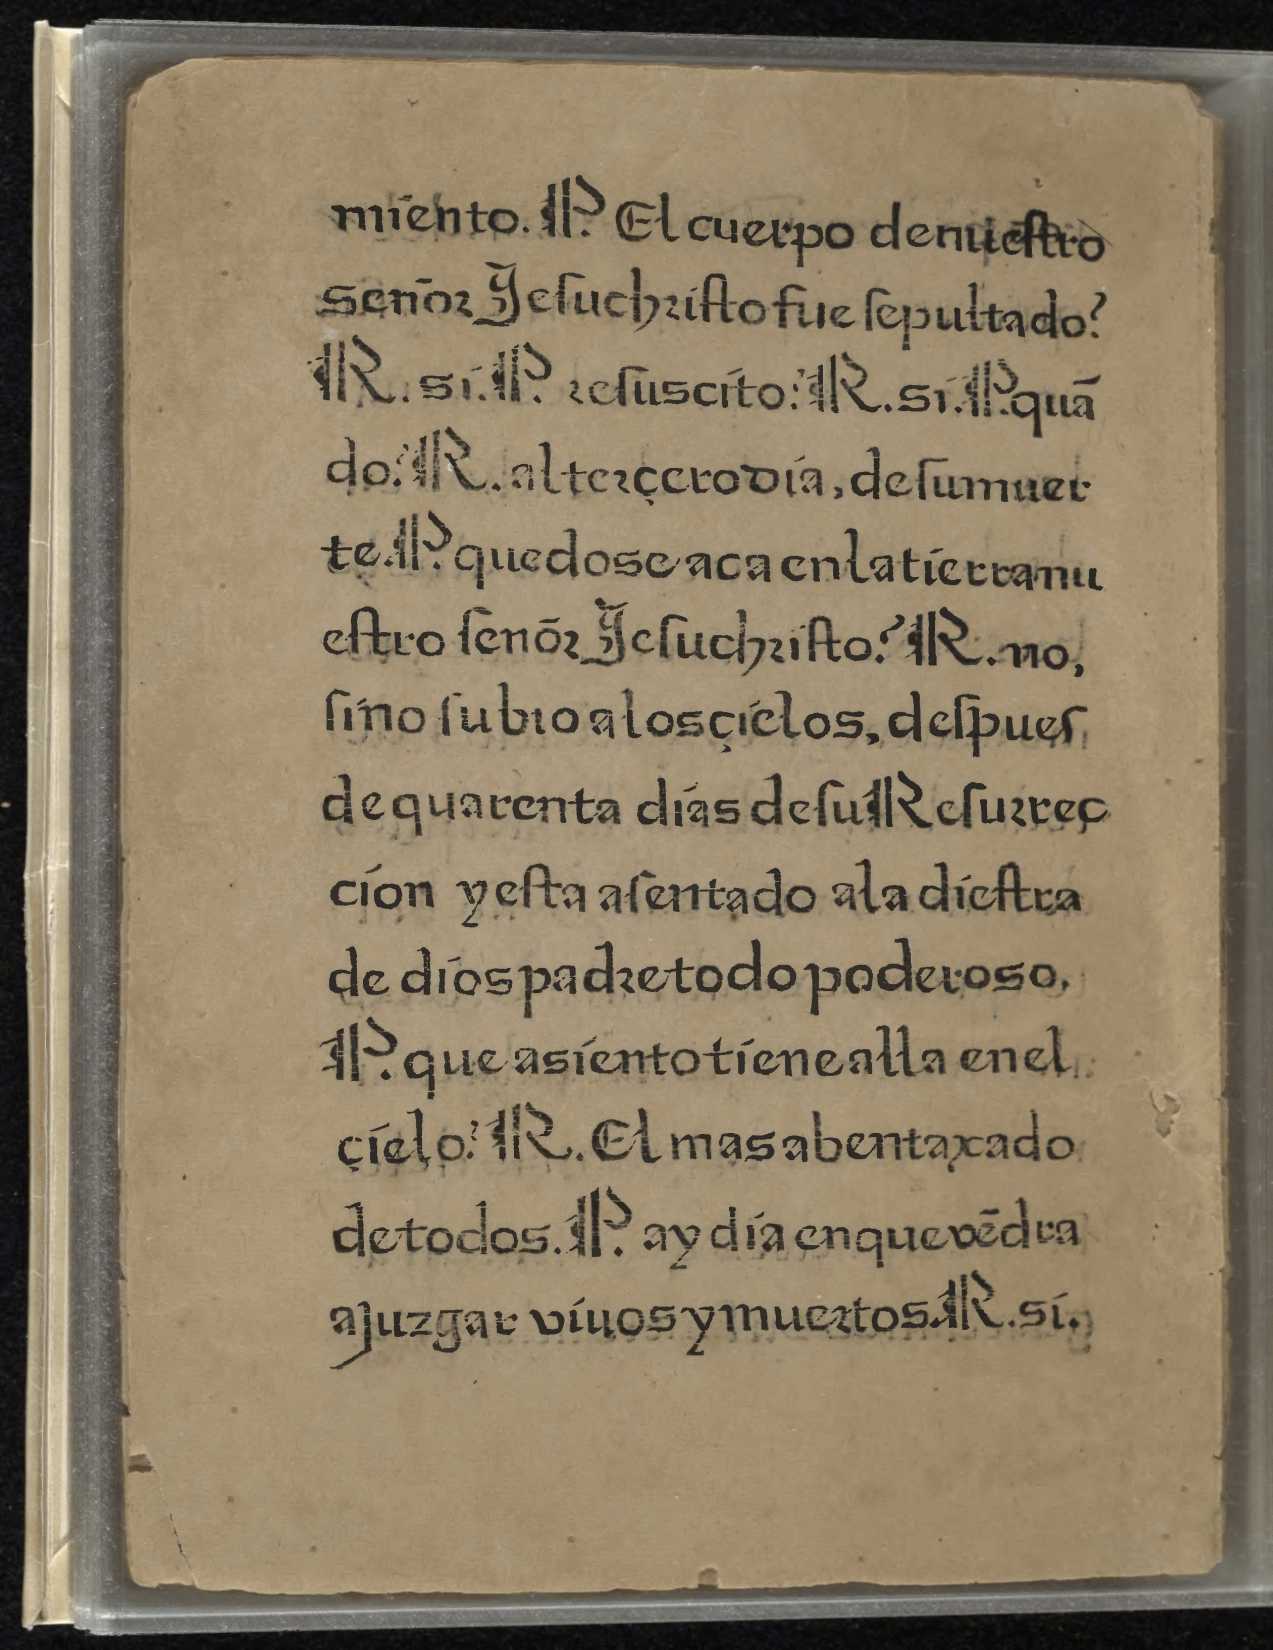 miento. P. El cuerpo de nuestro
señor Jesuchristo fue sepultado?
R. si. P. resuscito? R. si. P. quã
do? R. al terçero dia, de su muer
te. P. quedose aca en la tierra nu
estro señor Jesuchristo? R. no,
sino subio a los çielos, despues
de quarenta dias de su Resurreç
cion y esta asentado a la diestra
de dios padre todo poderoso.
P. que asiento tiene alla en el
çielo? R. El mas abentaxado
de todos. P. ay dia en que vẽdra
a juzgar viuos y muertos. R. si.